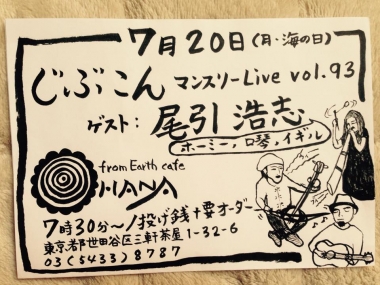 7月20日(月・海の日)
じぶこん マンスリーLive vol.93
ゲスト: 尾引 浩志
ホーミー, 口琴, イギル
from Earth cafe
OHANA
7時30分〜/投げ銭+要オーダー
東京都世田谷区三軒茶屋1-32-6
03(5433)8787